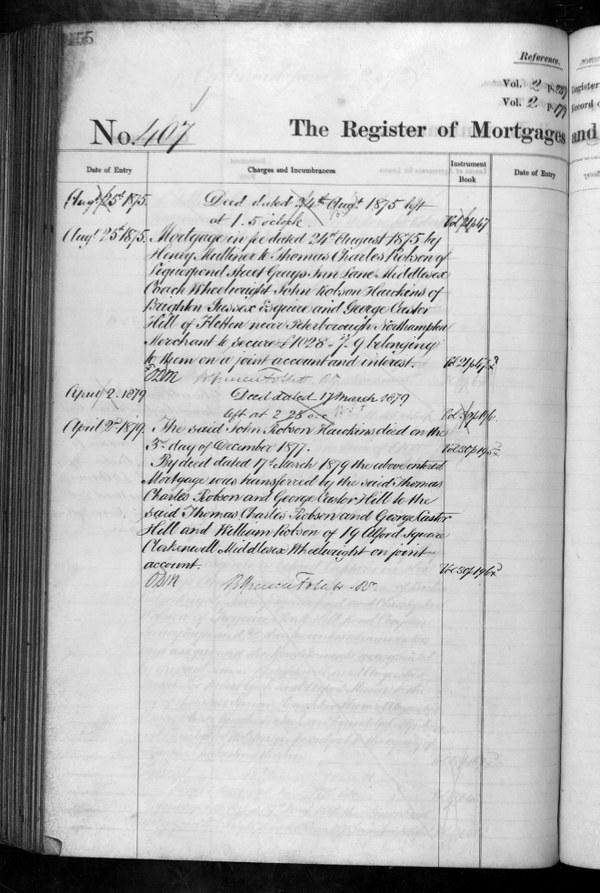 155
Reference.
Vol. 2 p.
Vol. 2 p.
Register
Record of
No. 407 The Register of Mortgages and
Date of Entry Charges and Incumbrances Instrument Book Date of Entry
Augt 25th 1875. Deed dated 24th Augt 1875 left
at 1.5 o'clock Vol 21 p 47
Augt 25th 1875. Mortgage in fee dated 24th August 1875 by
Henry Mulliner to Thomas Charles Robson of
Liquorpond Street Grays Inn Lane Middlesex
Coach Wheelwright John Robson Hawkins of
Brighton Sussex Esquire and George Castor
Hill of Fletton near Peterborough Northampton
Merchant to secure £1028-7-9 belonging
to them on a joint account and interest. Vol 21 p 47
April 2. 1879 Deed dated 17 March 1879
left at 2 28 o'c
April 2nd 1879. The said John Robson Hawkins died on the
3rd day of December 1877.
By deed dated 17th March 1879 the above entered
Mortgage was transferred by the said Thomas
Charles Robson and George Castor Hill to the
said Thomas Charles Robson and George Castor
Hill and William Robson of 19 Square
Clerkenwell Middlesex Wheelwright on joint
account. Vol 30 p 196